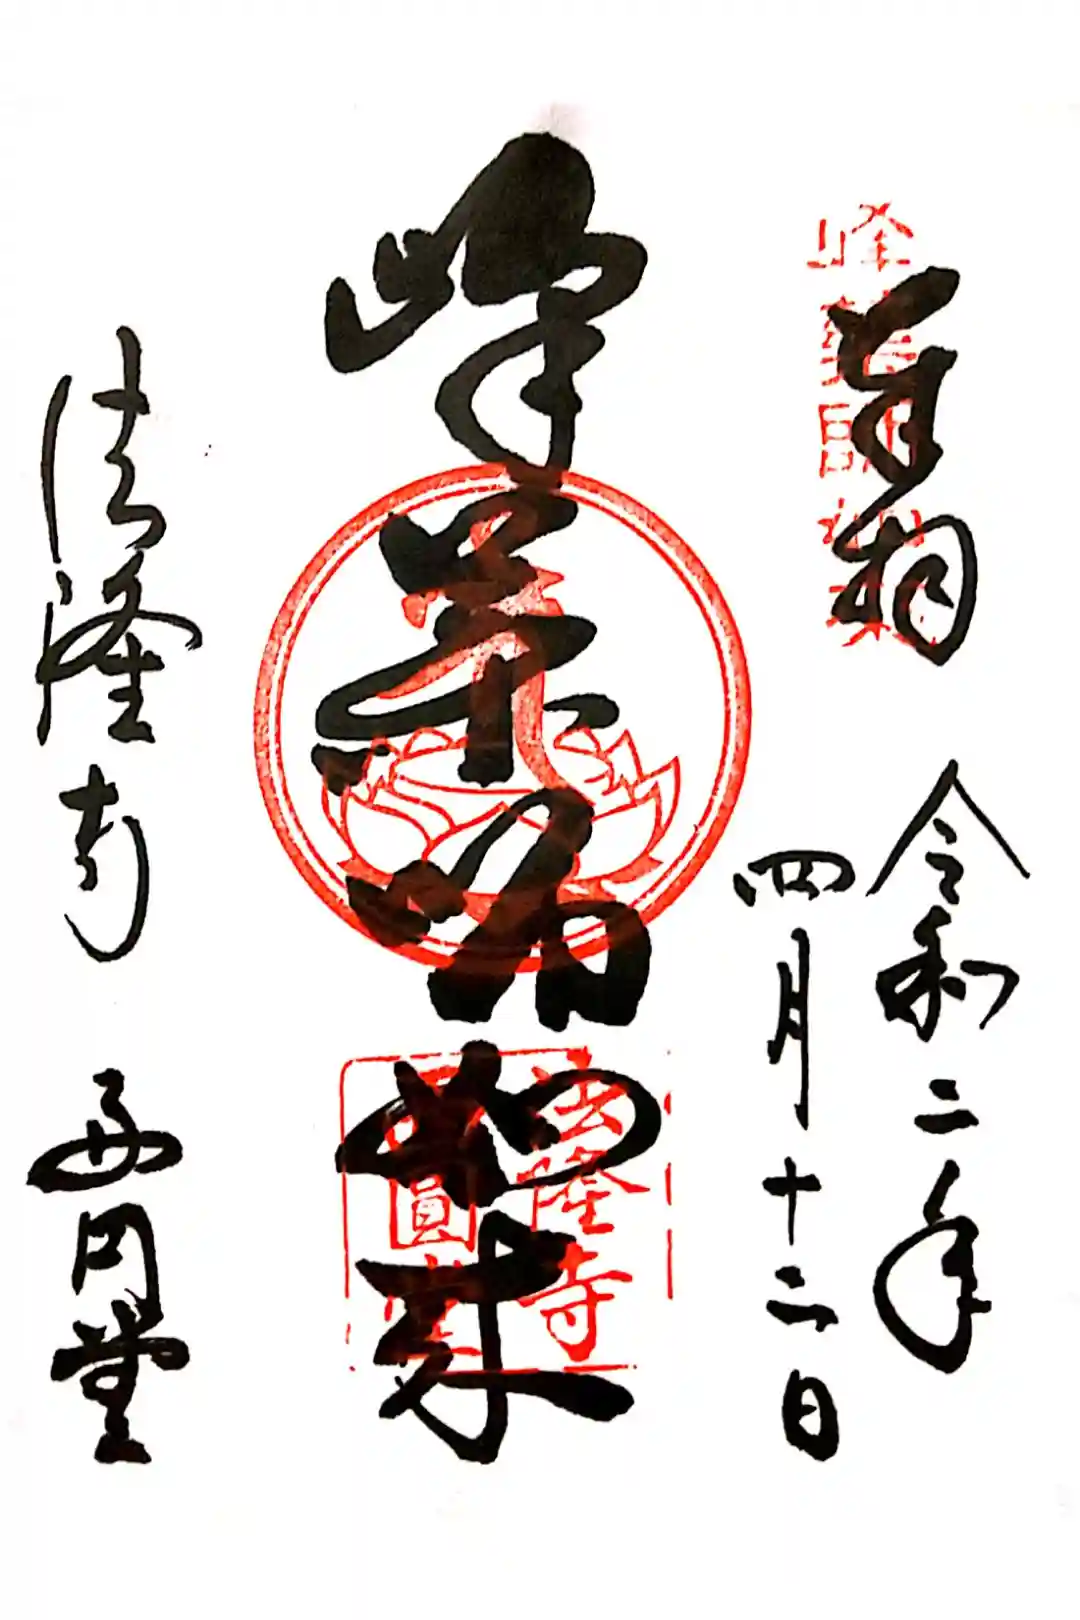 奉拝
峰薬師如来
令和二年
四月十二日
峰薬師如来
法隆寺
西圓堂
法隆寺 西円堂